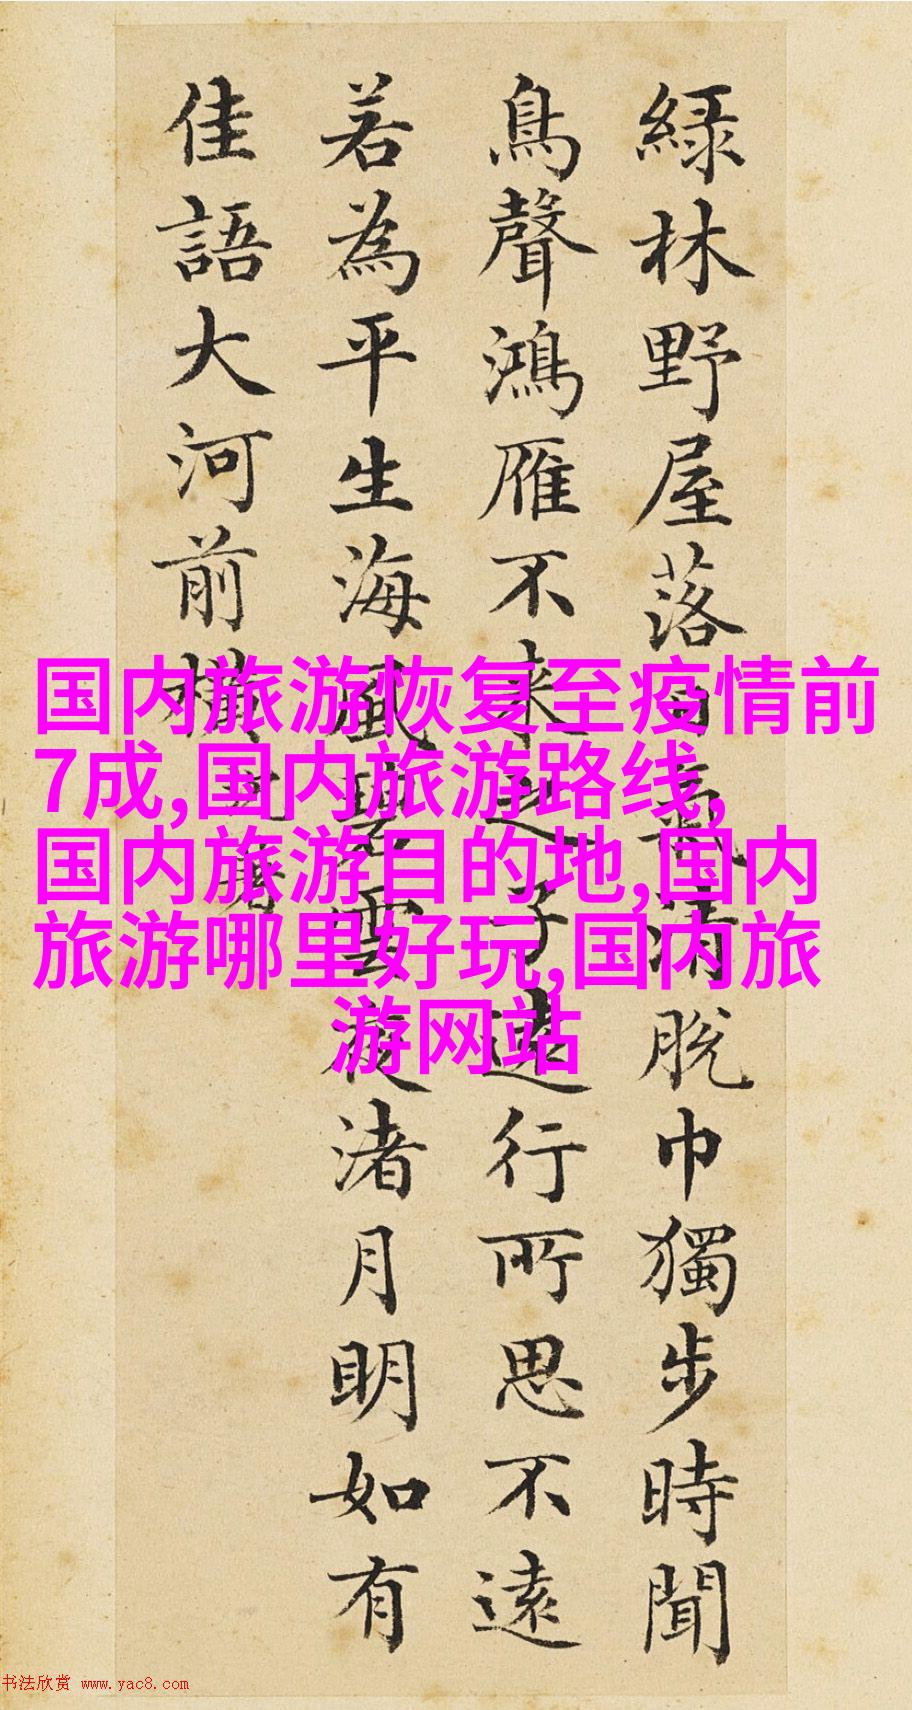 綠林野屋落日氣清脫巾獨步時聞
鳥聲鴻雁不來之子遠行所思不遠
若為平生海風碧雲夜渚月明如有
佳語大河前橫
国内旅游恢复至疫情前
7成,国内旅游路线,
国内旅游目的地,国内
旅游哪里好玩,国内旅
游网站
书法欣赏 www.yac8.com